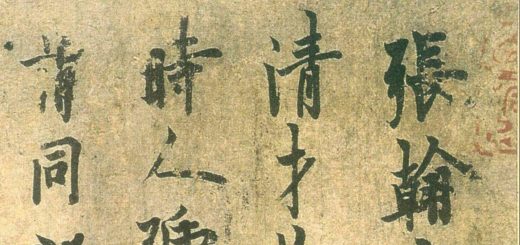 張翰
清才
時人
同